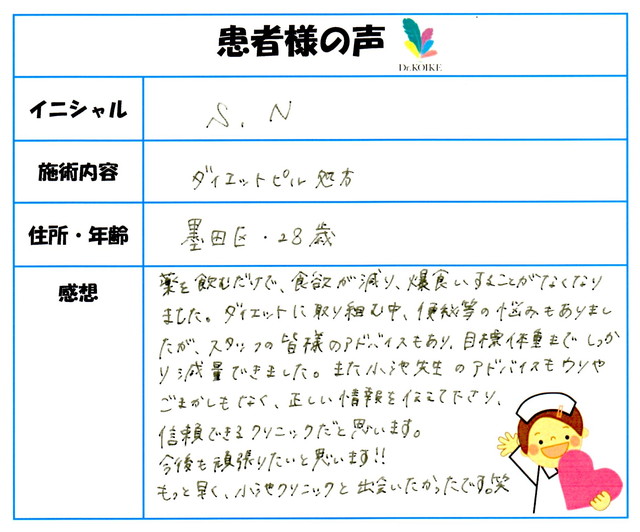 患者様の声
Dr.KOIKE
イニシャル
S.N
施術内容
ダイエットピル処方
住所・年齢
墨田区・28歳
感想
薬を飲むだけで、食欲が減り、爆食いすることがなくなり
ました。ダイエットに取り組む中、便秘等の悩みもありまし
たが、スタッフの皆様のアドバイスもあり、目標体重までしっか
り減量できました。また小池先生のアドバイスもウソや
ごまかしもなく、正しい情報を伝えて下さり、
信頼できるクリニックだと思います。
今後も頑張りたいと思います!!
もっと早く、小池クリニックと出会いたかったです。笑